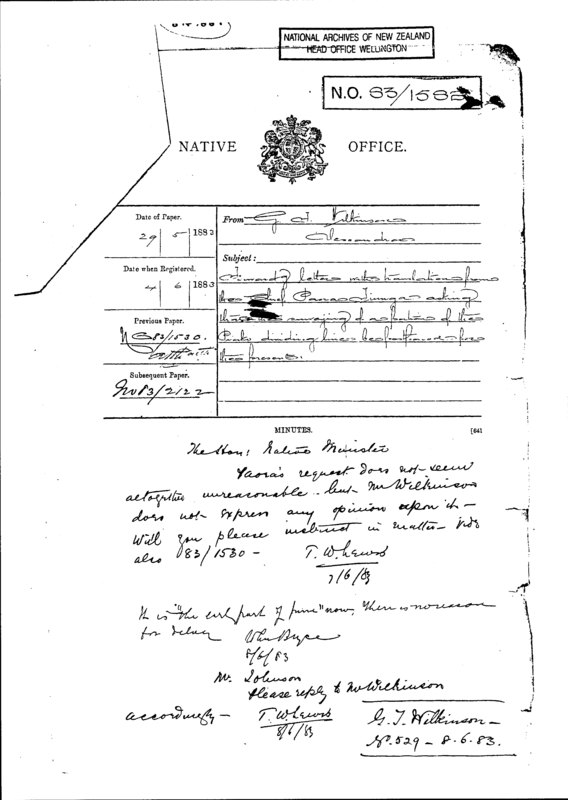 NATIONAL ARCHIVES OF NEW ZEALAND
HEAD OFFICE WELLINGTON
N.O. 83/1582
NATIVE OFFICE.
Date of Paper.
29 | 5 | 1883
Date when Registered.
4 | 6 | 1883
Previous Paper.
83/1530.
Subsequent Paper.
83/2122
From G. T. Wilkinson
Alexandra
Subject:
Forwardg letter with translation from
the Chief asking
that the surveying of a portion of the
dividing line be for
the present.
MINUTES.
[641
The Hon: Native Minister
request does not seem
altogether unreasonable - but Mr Wilkinson
does not express any opinion upon it -
Will you please instruct in matter -
also 83/1530 -
T. W. Lewis
7/6/83
It is "the early part of June" now, there is no reason
for delay
8/6/83
Mr. Johnson
Please reply to Mr Wilkinson
accordingly -
T. W. Lewis
8/6/83
G. T. Wilkinson -
No. 529 - 8.6.83.